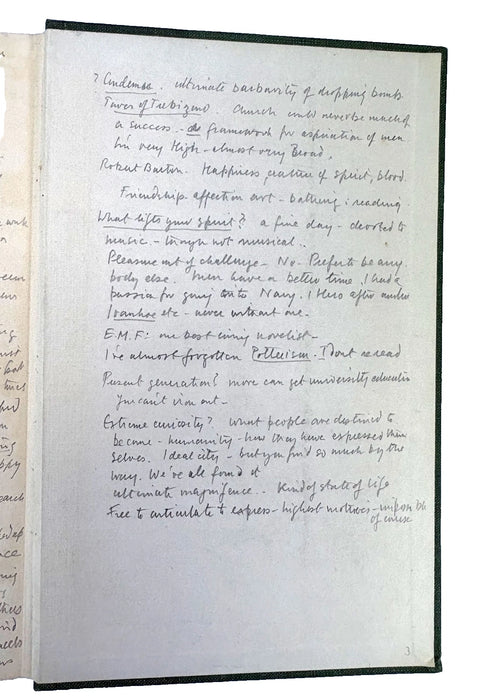 ? Condemns. ultimate barbarity of dropping bombs.
Towers of Trebizond. Church could never be much of
a success - framework for aspiration of men
I'm very High - almost very Broad.
Robert Burton. Happiness, of spirit, blood
Friendship affection art - bathing: reading.
What lifts your spirit? a fine day - devoted to
music - though not musical..
Pleasure out of challenge - No - Prefer to be any
body else. Men have a better time. I had a
passion for going into Navy. 1 Hero after another
Ivanhoe etc - never without one -
E.M.F: our best living novelist -
I've almost forgotten Potterism. I don't re read
Present generation? more can get university education
You can't iron out -
Extreme curiosity? What people are destined to
become - humanity - how they have expressed them
selves. Ideal city - but you find so much by the
way. We're all fond of
ultimate magnificence.. Kind of state of life
Free to articulate to express - highest motives - impossible
of course
3